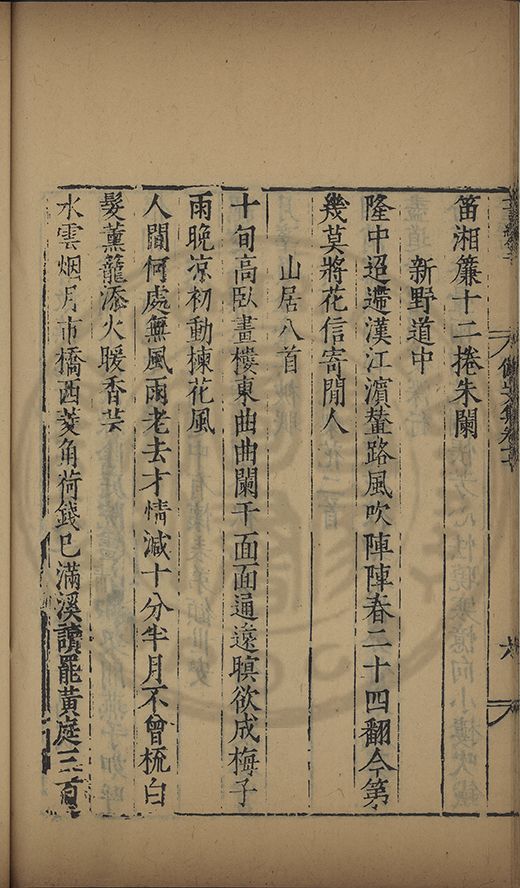 笛湘簾十二捲朱闌
新野道中
隆中迢遞漢江濵輦路風吹陣陣春二十四翻今第
幾莫將花信寄閒人
山居八首
十旬高臥畫樓東曲曲闌干面面通遠暝欲成梅子
雨晚凉初動楝花風
人間何處無風雨老去才情減十分半月不曾梳白
髮薰籠添火暖香芸
水雲烟月市橋西菱角荷錢已滿溪讀罷黃庭三百